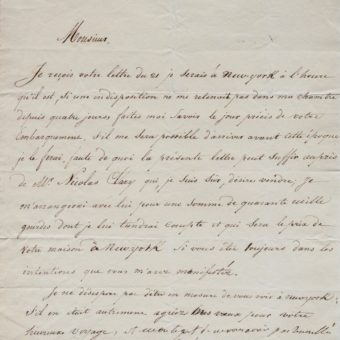 Monsieur,
Je reçois votre lettre du 21 je serais à Newyork à l'heure
qu'il est si une indisposition ne me retenoit pas dans ma chambre
depuis quatre jours faites moi savoir le jour précis de votre
embarquement. S'il me sera possible d'arriver avant cette époque
je le ferai, faute de quoi la présente lettre peut suffir auprès
de Mr. Nicolas que je suis sur, désire vendre, je
m'arrangerai avec lui pour une somme de quarante mille
gourdes dont je lui tiendrai compte et qui sera le prix de
votre maison à Newyork Si vous être toujours dans les
intentions que vous m'avez manifesté.
Je ne désespère pas d'être en mesure de vous voir à Newyork.
S'il en étoit autrement agréez mes vœux pour votre
heureux voyage, et